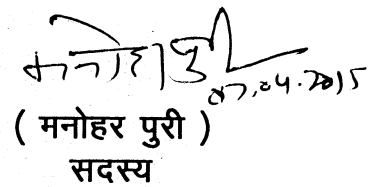 मनोहर पुरी
07.04.2015
( मनोहर पुरी )
सदस्य